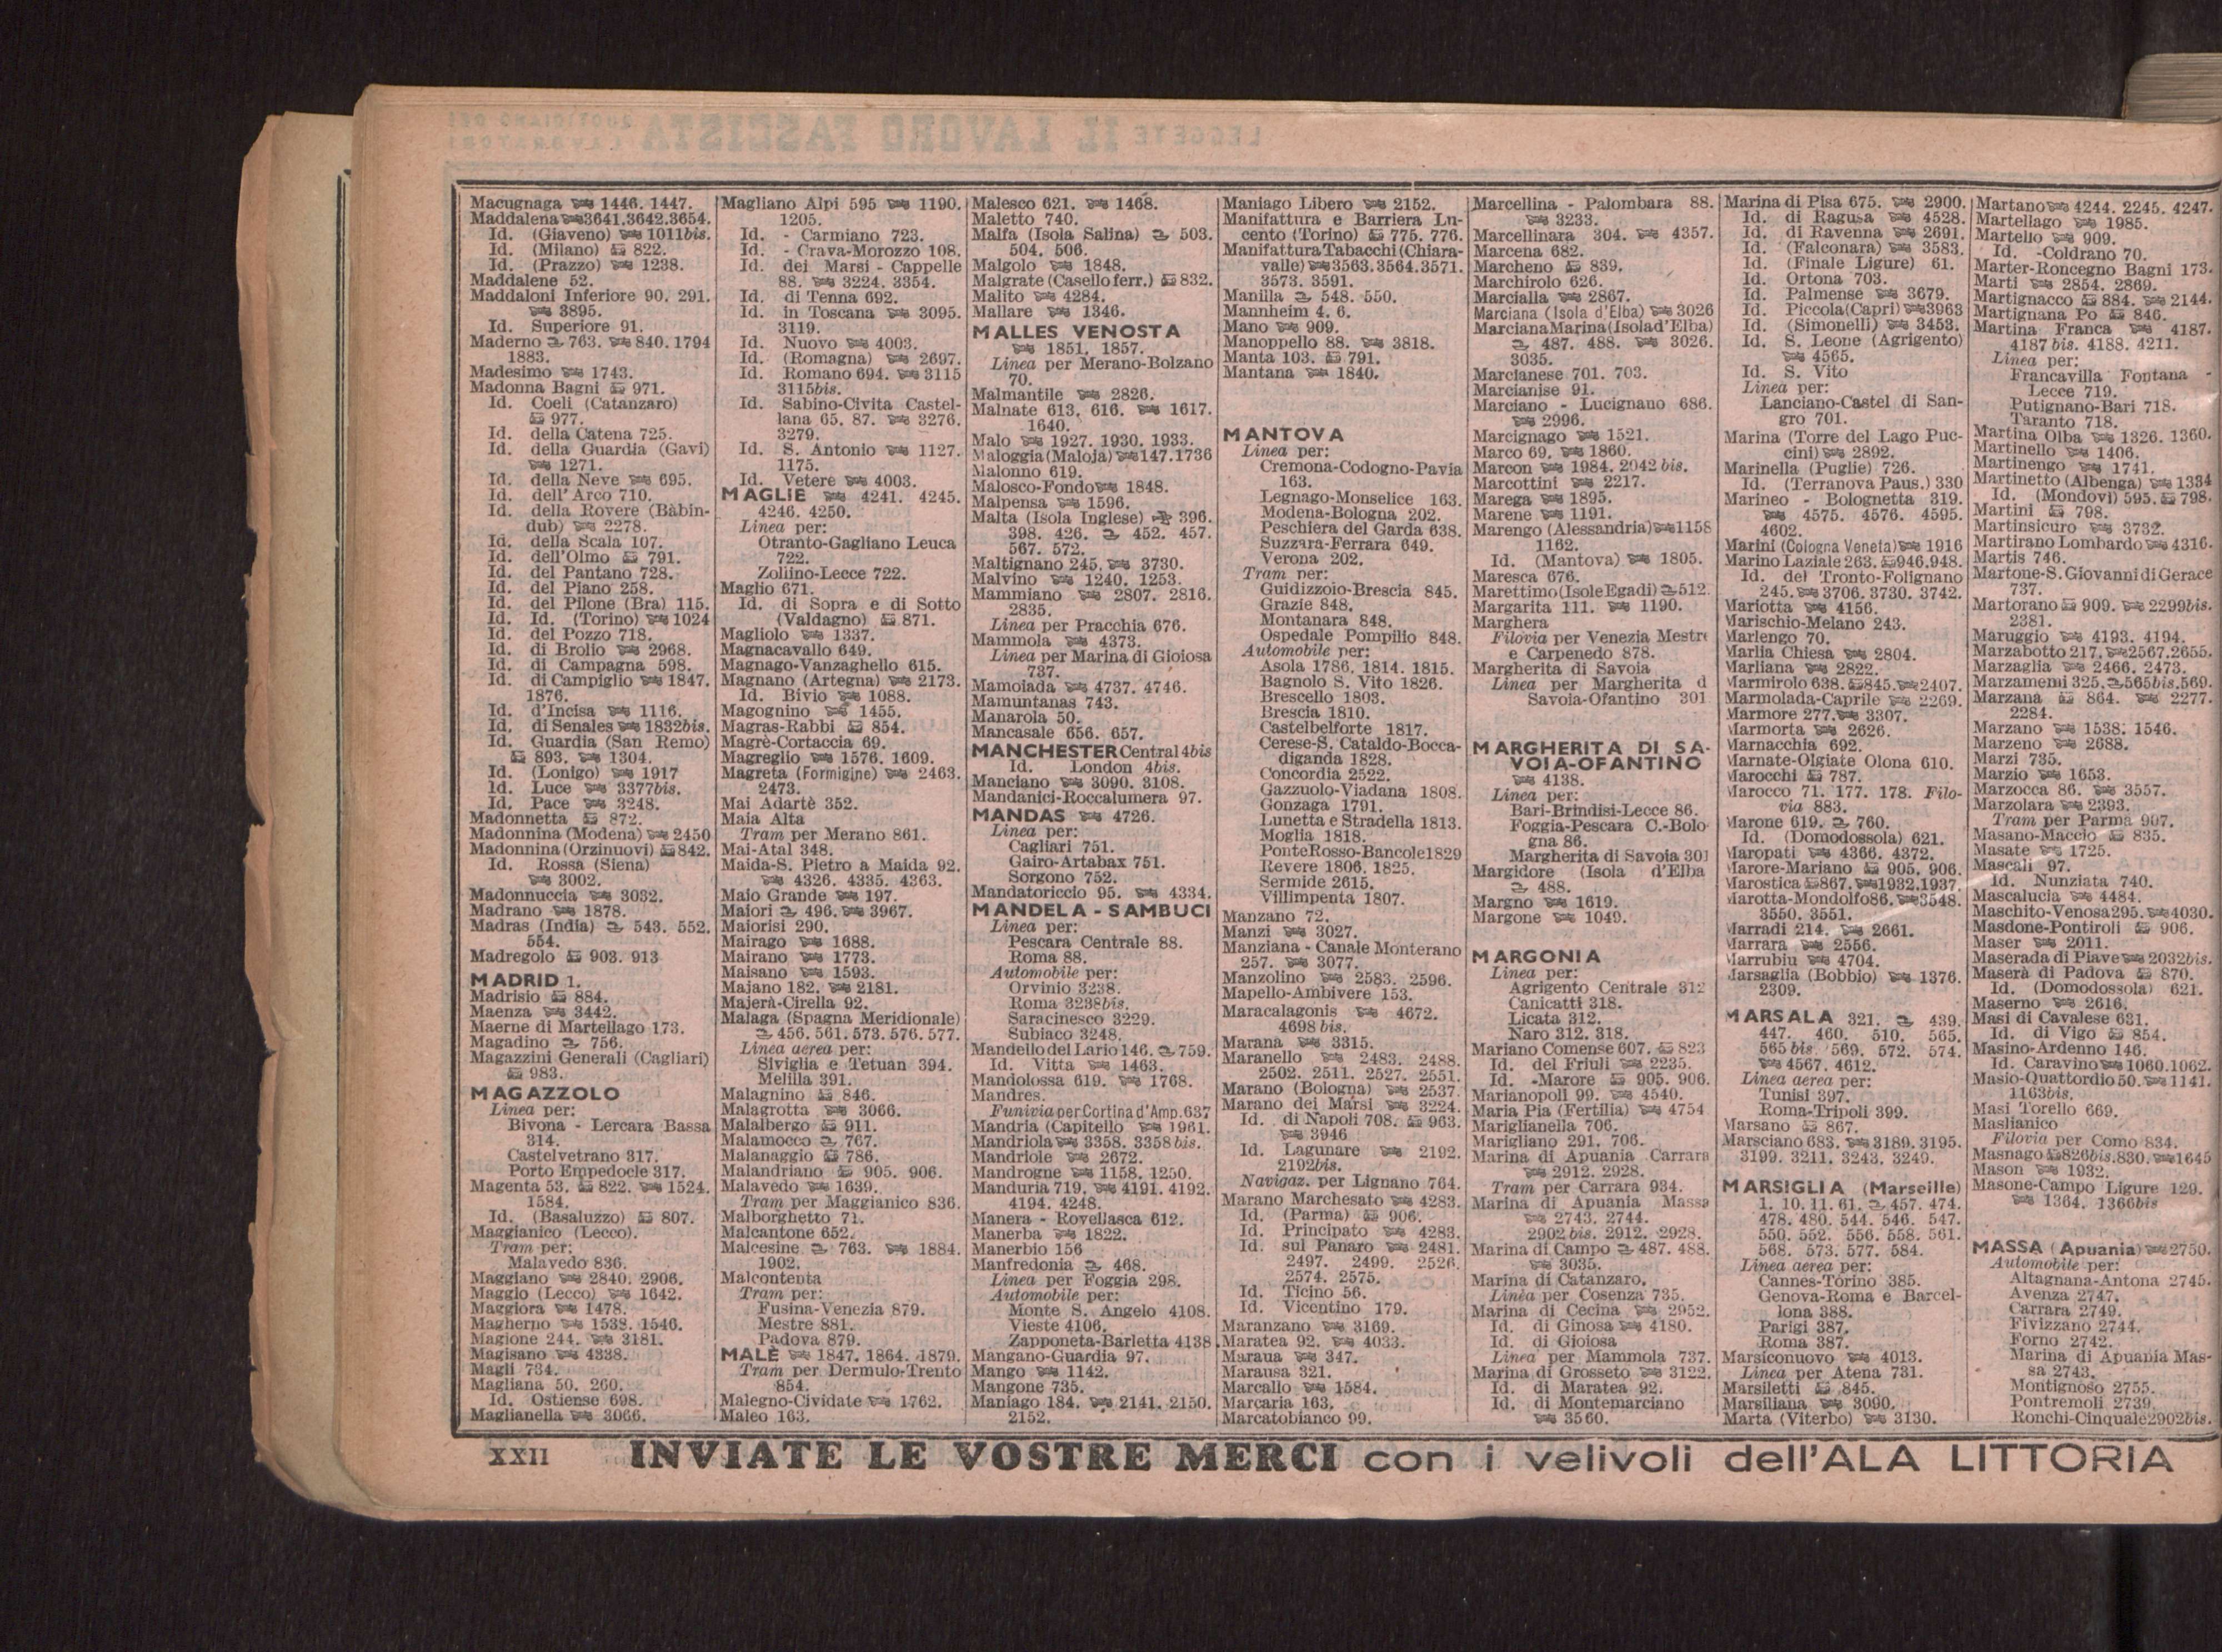 Macugnaga 1446. 1447.
Maddalena 3641.3642.3654.
Id. (Giaveno) 1011bis.
Id. (Milano) 822.
Id. (Prazzo) 1238.
Maddalene 52.
Maddaloni Inferiore 90. 291.
3895.
Id. Superiore 91.
Maderno 763. 840. 1794
1883.
Madesimo 1743.
Madonna Bagni 971.
Id. Coeli (Catanzaro)
977.
Id. della Catena 725.
Id. della Guardia (Gavi)
1271.
Id. della Neve 695.
Id. dell'Arco 710.
Id. della Rovere (Bàbin-
dub) 2278.
Id. della Scala 107.
Id. dell'Olmo 791.
Id. del Pantano 728.
Id. del Piano 258.
Id. del Pilone (Bra) 115.
Id. Id. (Torino) 1024
Id. del Pozzo 718.
Id. di Brolio 2968.
Id. di Campagna 598.
Id. di Campiglio 1847.
1876.
Id. d'Incisa 1116.
Id. di Senales 1832bis.
Id. Guardia (San Remo)
893. 1304.
Id. (Lonigo) 1917
Id. Luce 3377bis.
Id. Pace 3248.
Madonnetta 872.
Madonnina (Modena) 2450
Madonnina (Orzinuovi) 842.
Id. Rossa (Siena)
3002.
Madonnuccia 3032.
Madrano 1878.
Madras (India) 543. 552.
554.
Madregolo 903. 913
MADRID 1.
Madrisio 884.
Maenza 3442.
Maerne di Martellago 173.
Magadino 756.
Magazzini Generali (Cagliari)
983.
MAGAZZOLO
Linea per:
Bivona - Lercara Bassa
314.
Castelvetrano 317.
Porto Empedocle 317.
Magenta 53. 822. 1524.
1584.
Id. (Basaluzzo) 807.
Maggianico (Lecco).
Tram per:
Malavedo 836.
Maggiano 2840. 2906.
Maggio (Lecco) 1642.
Maggiora 1478.
Magherno 1538. 1546.
Magione 244. 3181.
Magisano 4338.
Magli 734.
Magliana 50. 260.
Id. Ostiense 698.
Maglianella 3066.
Magliano Alpi 595 1190.
1205.
Id. - Carmiano 723.
Id. - Crava-Morozzo 108.
Id. dei Marsi - Cappelle
88. 3224. 3354.
Id. di Tenna 692.
Id. in Toscana 3095.
3119.
Id. Nuovo 4003.
Id. (Romagna) 2697.
Id. Romano 694. 3115
3115bis.
Id. Sabino-Civita Castel-
lana 65. 87. 3276.
3279.
Id. S. Antonio 1127.
1175.
Id. Vetere 4003.
MAGLIE 4241. 4245.
4246. 4250.
Linea per:
Otranto-Gagliano Leuca
722.
Zollino-Lecce 722.
Maglio 671.
Id. di Sopra e di Sotto
(Valdagno) 871.
Magliolo 1337.
Magnacavallo 649.
Magnago-Vanzaghello 615.
Magnano (Artegna) 2173.
Id. Bivio 1088.
Magognino 1455.
Magras-Rabbi 854.
Magrè-Cortaccia 69.
Magreglio 1576. 1609.
Magreta (Formigine) 2463.
2473.
Mai Adartè 352.
Maia Alta
Tram per Merano 861.
Mai-Atal 348.
Maida-S. Pietro a Maida 92.
4326. 4335. 4363.
Maio Grande 197.
Maiori 496. 3967.
Maiorisi 290.
Mairago 1688.
Mairano 1773.
Maisano 1593.
Majano 182. 2181.
Majerà-Cirella 92.
Malaga (Spagna Meridionale)
456. 561. 573. 576. 577.
Linea aerea per:
Siviglia e Tetuan 394.
Melilla 391.
Malagnino 846.
Malagrotta 3066.
Malalbergo 911.
Malamocco 767.
Malanaggio 786.
Malandriano 905. 906.
Malavedo 1639.
Tram per Maggianico 836.
Malborghetto 71.
Malcantone 652.
Malcesine 763. 1884.
1902.
Malcontenta
Tram per:
Fusina-Venezia 879.
Mestre 881.
Padova 879.
MALÈ 1847. 1864. 1879.
Tram per Dermulo-Trento
854.
Malegno-Cividate 1762.
Maleo 163.
Malesco 621. 1468.
Maletto 740.
Malfa (Isola Salina) 503.
504. 506.
Malgolo 1848.
Malgrate (Casello ferr.) 832.
Malito 4284.
Mallare 1346.
MALLES VENOSTA
1851. 1857.
Linea per Merano-Bolzano
70.
Malmantile 2826.
Malnate 613. 616. 1617.
1640.
Malo 1927. 1930. 1933.
Maloggia (Maloja) 147.1736
Malonno 619.
Malosco-Fondo 1848.
Malpensa 1596.
Malta (Isola Inglese) 396.
398. 426. 452. 457.
567. 572.
Maltignano 245. 3730.
Malvino 1240. 1253.
Mammiano 2807. 2816.
2835.
Linea per Pracchia 676.
Mammola 4373.
Linea per Marina di Gioiosa
737.
Mamoiada 4737. 4746.
Mamuntanas 743.
Manarola 50.
Mancasale 656. 657.
MANCHESTER Central 4bis
Id. London 4bis.
Manciano 3090. 3108.
Mandanici-Roccalumera 97.
MANDAS 4726.
Linea per:
Cagliari 751.
Gairo-Artabax 751.
Sorgono 752.
Mandatoriccio 95. 4334.
MANDELA - SAMBUCI
Linea per:
Pescara Centrale 88.
Roma 88.
Automobile per:
Orvinio 3238.
Roma 3238bis.
Saracinesco 3229.
Subiaco 3248.
Mandello del Lario 146. 759.
Id. Vitta 1463.
Mandolossa 619. 1768.
Mandres.
Funivia per Cortina d'Amp. 637
Mandria (Capitello 1961.
Mandriola 3358. 3358bis.
Mandriole 2672.
Mandrogne 1158. 1250.
Manduria 719. 4191. 4192.
4194. 4248.
Manera - Rovellasca 612.
Manerba 1822.
Manerbio 156
Manfredonia 468.
Linea per Foggia 298.
Automobile per:
Monte S. Angelo 4108.
Vieste 4106.
Zapponeta-Barletta 4138
Mangano-Guardia 97.
Mango 1142.
Mangone 735.
Maniago 184. 2141. 2150.
2152.
Maniago Libero 2152.
Manifattura e Barriera Lu-
cento (Torino) 775. 776.
Manifattura Tabacchi (Chiara-
valle) 3563.3564.3571.
3573. 3591.
Manilla 548. 550.
Mannheim 4. 6.
Mano 909.
Manoppello 88. 3818.
Manta 103. 791.
Mantana 1840.
MANTOVA
Linea per:
Cremona-Codogno-Pavia
163.
Legnago-Monselice 163.
Modena-Bologna 202.
Peschiera del Garda 638.
Suzzara-Ferrara 649.
Verona 202.
Tram per:
Guidizzolo-Brescia 845.
Grazie 848.
Montanara 848.
Ospedale Pompilio 848.
Automobile per:
Asola 1786. 1814. 1815.
Bagnolo S. Vito 1826.
Brescello 1803.
Brescia 1810.
Castelbelforte 1817.
Cerese-S. Cataldo-Bocca-
diganda 1828.
Concordia 2522.
Gazzuolo-Viadana 1808.
Gonzaga 1791.
Lunetta e Stradella 1813.
Moglia 1818.
Ponte Rosso-Bancole 1829
Revere 1806. 1825.
Sermide 2615.
Villimpenta 1807.
Manzano 72.
Manzi 3027.
Manziana - Canale Monterano
257. 3077.
Manzolino 2583. 2596.
Mapello-Ambivere 153.
Maracalagonis 4672.
4698 bis.
Marana 3315.
Maranello 2483. 2488.
2502. 2511. 2527. 2551.
Marano (Bologna) 2537.
Marano dei Marsi 3224.
Id. di Napoli 708. 963.
3946
Id. Lagunare 2192.
2192bis.
Navigaz. per Lignano 764.
Marano Marchesato 4283.
Id. (Parma) 906.
Id. Principato 4283.
Id. sul Panaro 2481.
2497. 2499. 2526.
2574. 2575.
Id. Ticino 56.
Id. Vicentino 179.
Maranzano 3169.
Maratea 92. 4033.
Maraua 347.
Marausa 321.
Marcallo 1584.
Marcaria 163.
Marcatobianco 99.
Marcellina - Palombara 88.
3233.
Marcellinara 304. 4357.
Marcena 682.
Marcheno 839.
Marchirolo 626.
Marcialla 2867.
Marciana (Isola d'Elba) 3026
Marciana Marina (Isola d'Elba)
487. 488. 3026.
3035.
Marcianese 701. 703.
Marcianise 91.
Marciano - Lucignano 686.
2996.
Marcignago 1521.
Marco 69. 1860.
Marcon 1984. 2042 bis.
Marcottini 2217.
Marega 1895.
Marene 1191.
Marengo (Alessandria) 1158
1162.
Id. (Mantova) 1805.
Maresca 676.
Marettimo (Isole Egadi) 512.
Margarita 111. 1190.
Marghera
Filovia per Venezia Mestre
e Carpenedo 878.
Margherita di Savoia
Linea per Margherita d
Savoia-Ofantino 301
MARGHERITA DI SA-
VOIA-OFANTINO
4138.
Linea per:
Bari-Brindisi-Lecce 86.
Foggia-Pescara C.-Bolo
gna 86.
Margherita di Savoia 301
Margidore (Isola d'Elba
488.
Margno 1619.
Margone 1049.
MARGONIA
Linea per:
Agrigento Centrale 312
Canicattì 318.
Licata 312.
Naro 312. 318.
Mariano Comense 607. 823
Id. del Friuli 2235.
Id. -Marore 905. 906.
Marianopoli 99. 4540.
Maria Pia (Fertilia) 4754
Mariglianella 706.
Marigliano 291. 706.
Marina di Apuania Carrara
2912. 2928.
Tram per Carrara 934.
Marina di Apuania Massa
2743. 2744.
2902 bis. 2912. 2928.
Marina di Campo 487. 488.
3035.
Marina di Catanzaro.
Linea per Cosenza 735.
Marina di Cecina 2952.
Id. di Ginosa 4180.
Id. di Gioiosa
Linea per Mammola 737.
Marina di Grosseto 3122.
Id. di Maratea 92.
Id. di Montemarciano
3560.
Marina di Pisa 675. 2900.
Id. di Ragusa 4528.
Id. di Ravenna 2691.
Id. (Falconara) 3583.
Id. (Finale Ligure) 61.
Id. Ortona 703.
Id. Palmense 3679.
Id. Piccola (Capri) 3963
Id. (Simonelli) 3453.
Id. S. Leone (Agrigento)
4565.
Id. S. Vito
Linea per:
Lanciano-Castel di San-
gro 701.
Marina (Torre del Lago Puc-
cini) 2892.
Marinella (Puglie) 726.
Id. (Terranova Paus.) 330
Marineo - Bolognetta 319.
4575. 4576. 4595.
4602.
Marini (Cologna Veneta) 1916
Marino Laziale 263. 946.948.
Id. del Tronto-Folignano
245. 3706. 3730. 3742.
Mariotta 4156.
Marischio-Melano 243.
Marlengo 70.
Marlia Chiesa 2804.
Marliana 2822.
Marmirolo 638. 845. 2407.
Marmolada-Caprile 2269.
Marmore 277. 3307.
Marmorta 2626.
Marnacchia 692.
Marnate-Olgiate Olona 610.
Marocchi 787.
Marocco 71. 177. 178. Filo-
via 883.
Marone 619. 760.
Id. (Domodossola) 621.
Maropati 4366. 4372.
Marore-Mariano 905. 906.
Marostica 867. 1932.1937.
Marotta-Mondolfo 86. 3548.
3550. 3551.
Marradi 214. 2661.
Marrara 2556.
Marrubiu 4704.
Marsaglia (Bobbio) 1376.
2309.
MARSALA 321. 439.
447. 460. 510. 565.
565 bis. 569. 572. 574.
4567. 4612.
Linea aerea per:
Tunisi 397.
Roma-Tripoli 399.
Marsano 867.
Marsciano 683. 3189. 3195.
3199. 3211. 3243. 3249.
MARSIGLIA (Marseille)
1. 10. 11. 61. 457. 474.
478. 480. 544. 546. 547.
550. 552. 556. 558. 561.
568. 573. 577. 584.
Linea aerea per:
Cannes-Torino 385.
Genova-Roma e Barcel-
lona 388.
Parigi 387.
Roma 387.
Marsiconuovo 4013.
Linea per Atena 731.
Marsiletti 845.
Marsiliana 3090.
Marta (Viterbo) 3130.
Martano 4244. 2245. 4247.
Martellago 1985.
Martello 909.
Id. -Coldrano 70.
Marter-Roncegno Bagni 173.
Marti 2854. 2869.
Martignacco 884. 2144.
Martignana Po 846.
Martina Franca 4187.
4187 bis. 4188. 4211.
Linea per:
Francavilla Fontana -
Lecce 719.
Putignano-Bari 718.
Taranto 718.
Martina Olba 1326. 1360.
Martinello 1406.
Martinengo 1741.
Martinetto (Albenga) 1334
Id. (Mondovì) 595. 798.
Martini 798.
Martinsicuro 3732.
Martirano Lombardo 4316.
Martis 746.
Martone-S. Giovanni di Gerace
737.
Martorano 909. 2299bis.
2381.
Maruggio 4193. 4194.
Marzabotto 217. 2567.2655.
Marzaglia 2466. 2473.
Marzamemi 325. 565bis.569.
Marzana 864. 2277.
2284.
Marzano 1538. 1546.
Marzeno 2688.
Marzi 735.
Marzio 1653.
Marzocca 86. 3557.
Marzolara 2393.
Tram per Parma 907.
Masano-Maccio 835.
Masate 1725.
Mascali 97.
Id. Nunziata 740.
Mascalucia 4484.
Maschito-Venosa 295. 4030.
Masdone-Pontiroli 906.
Maser 2011.
Maserada di Piave 2032bis.
Maserà di Padova 870.
Id. (Domodossola) 621.
Maserno 2616.
Masi di Cavalese 631.
Id. di Vigo 854.
Masino-Ardenno 146.
Id. Caravino 1060.1062.
Masio-Quattordio 50. 1141.
1163bis.
Masi Torello 669.
Maslianico
Filovia per Como 834.
Masnago 826bis.830. 1645
Mason 1932.
Masone-Campo Ligure 129.
1364. 1366bis
MASSA (Apuania) 2750.
Automobile per:
Altagnana-Antona 2745.
Avenza 2747.
Carrara 2749.
Fivizzano 2744.
Forno 2742.
Marina di Apuania Mas-
sa 2743.
Montignoso 2755.
Pontremoli 2739.
Ronchi-Cinquale 2902bis.
XXII INVIATE LE VOSTRE MERCI con i velivoli dell'ALA LITTORIA